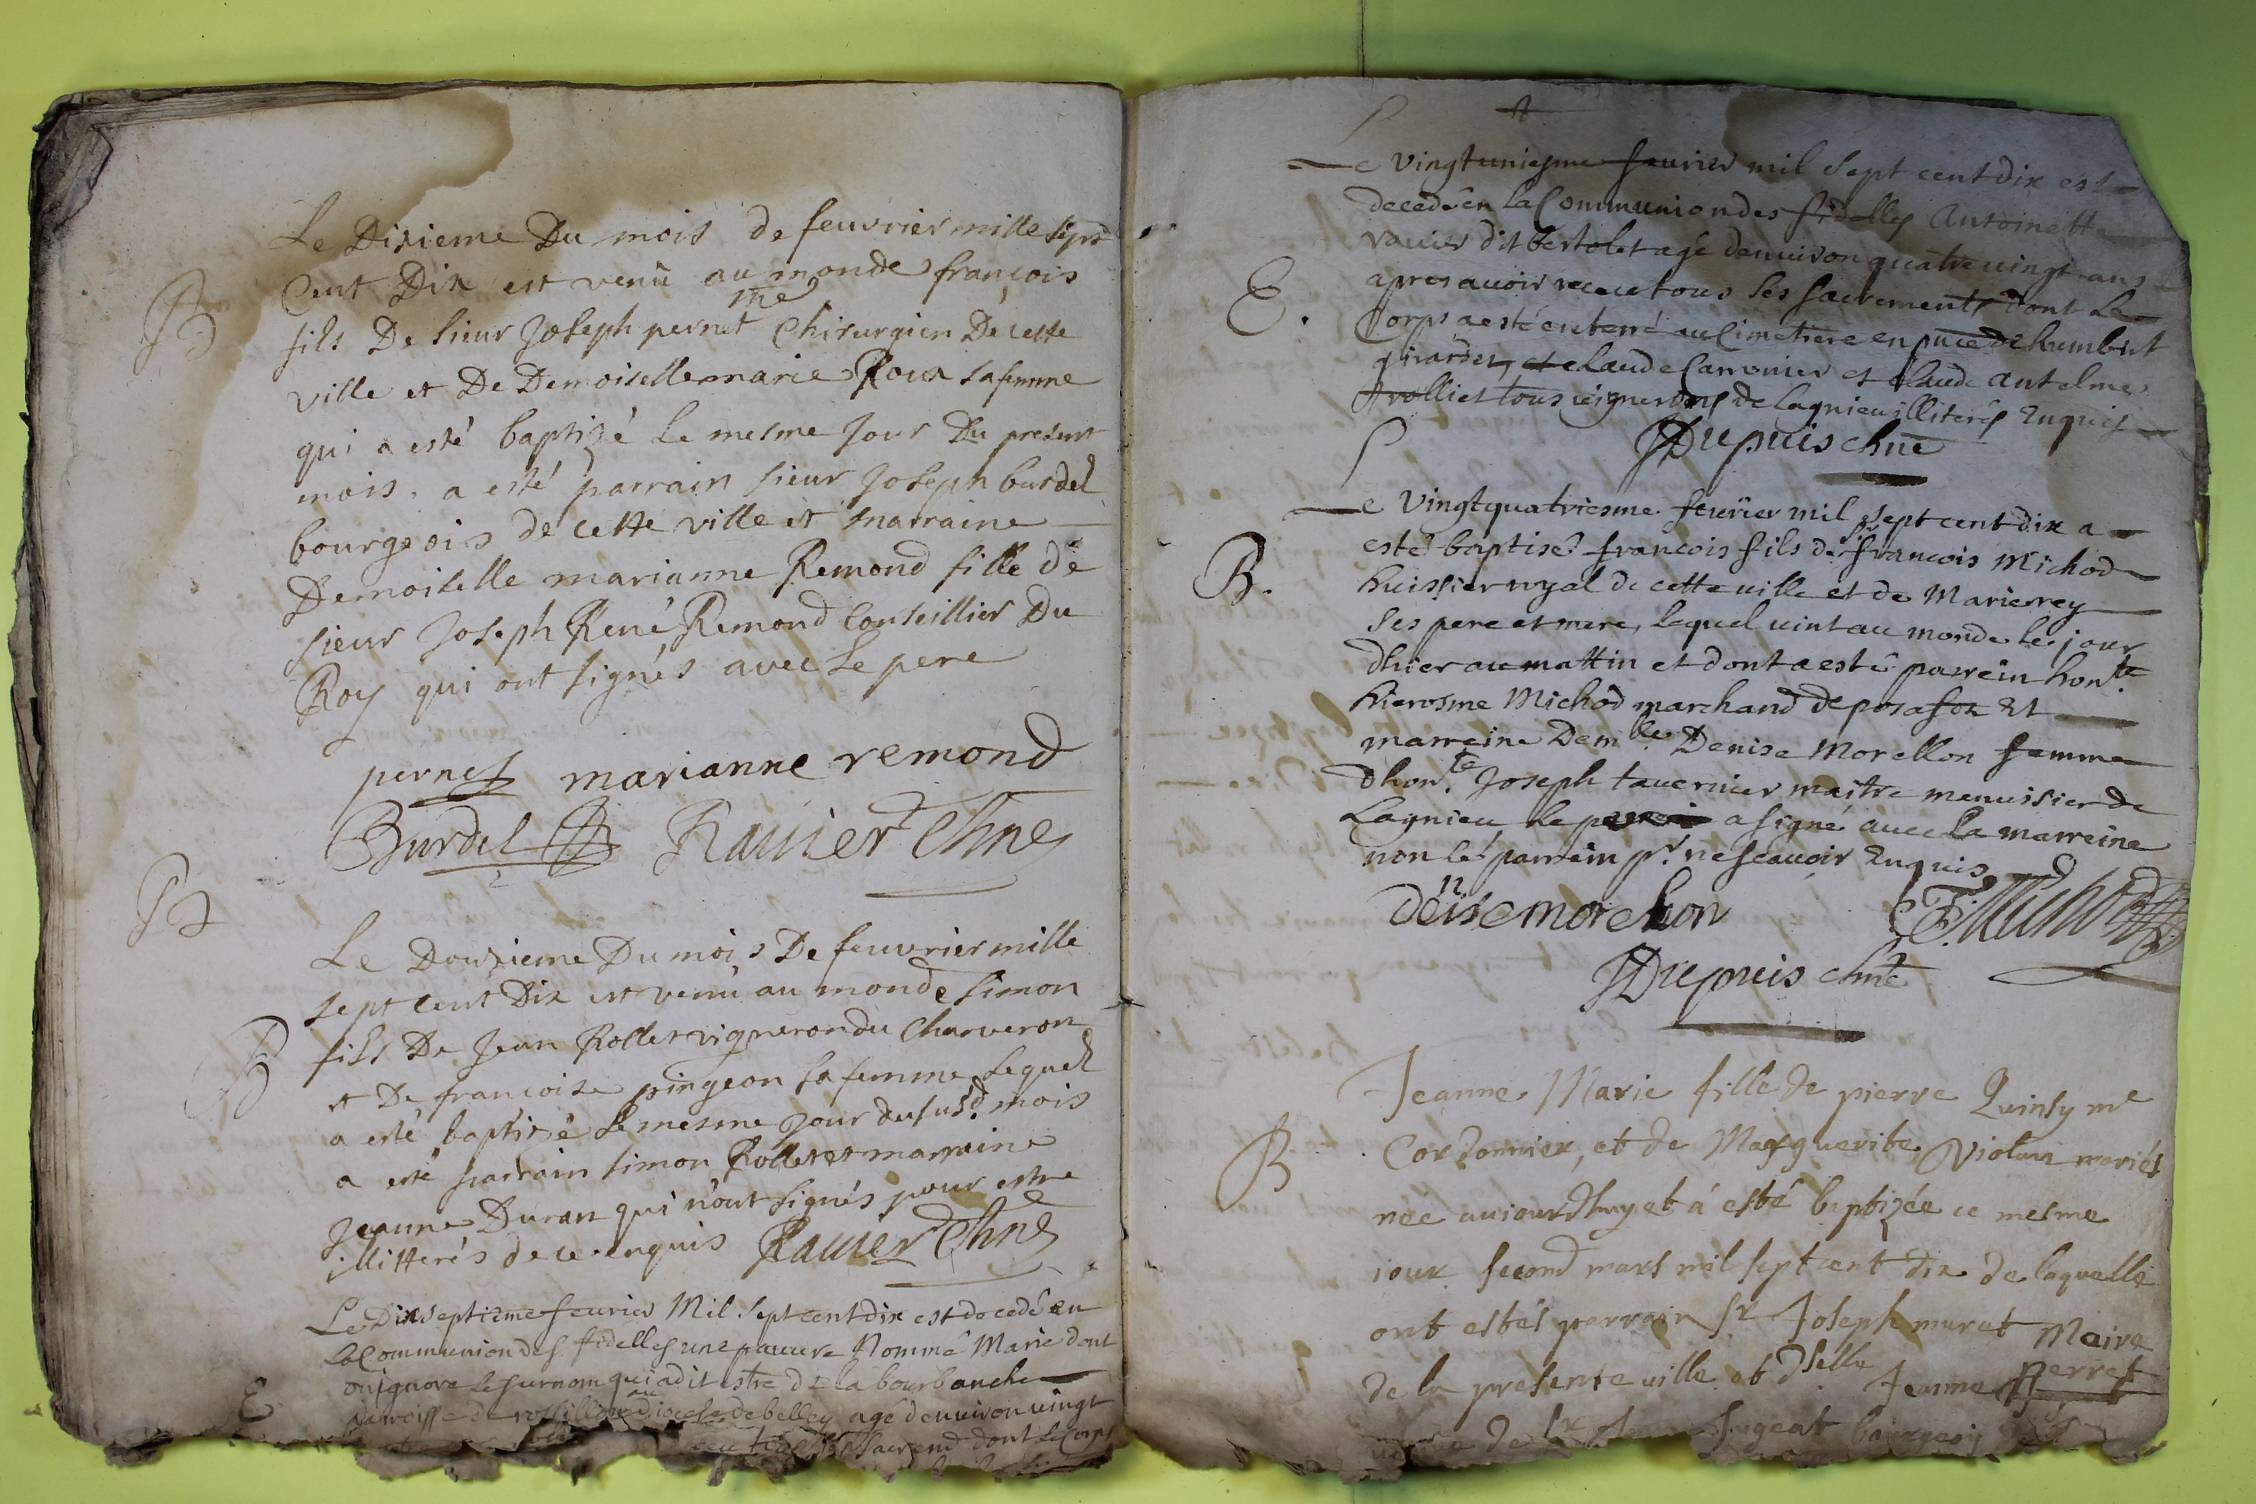 Le Dixieme Du mois de feuvrier mille sept
Cent Dix est venu au monde françois
fils De sieur Joseph pernet me Chirurgien De cette
ville et De Demoiselle marie Roux sa femme
qui a esté baptizé le mesme Jour Du present
mois. a esté parrain sieur Joseph burdel
bourgeois de cette ville et marraine
Demoiselle marianne Remond fille de
sieur Joseph René Remond Conseillier Du
Roy qui ont signés avec le pere
pernet marianne remond
Burdel Rauier Chne
B
B
Le Douzieme Du mois De feuvrier mille
sept cent Dix est venu au monde simon
B
fils De Jean Rollet vigneron du Charveron
et De francoise pingeon sa femme, lequel
a esté baptisé le mesme Jour du susd. mois
a esté parrain simon Rollet et marraine
Jeanne Duran qui n'ont signés pour estre
illitterés de ce enquis Rauier Chne
Le Dixseptieme feurier Mil sept cent dix est decedé en
La Communion des fidelles une pauure Nommé Marie dont
on ignore le surnom qui a dit estre de la bourbanche
E
parroisse de rossillon au diocese de belley agé denuiron vingt
dont le Corps
Le vingtuniesme feurier mil sept cent dix est
decedé en la Communion des fidelles Antoinett
rauier dit bertolet agé denuiron quatre uingt ans
E.
apres auoir receu tous ses sacrements dont Le
Corps a esté enterré au Cimetiere en pnce de humbert
girardet, et claude Carronier et claude antelme
trolliet tous uignerons de Lagnieu illiterés Enquis
Dupuis chne
Le Vingtquatriesme feurier mil sept cent dix a
esté baptisé francois fils de sr francois Michod
B.
huissier royal de cette uille et de Marie rey
ses pere et mere, lequel uint au monde le jour
dhier au mattin et dont a esté parrein honte
hierosme Michod marchand de posafol Et
marreine Demlle Denise Morellon femme
dhonte Joseph tauernier maitre menuisier de
Lagnieu, le pere a signé auec la marreine
non le parrein pr ne scauoir Enquis
denise morellon F. Michod
Dupuis chne
Jeanne Marie fille de pierre Quinsy me
B
Cordonnier, et de Marguerite Violan mariés
née auiourdhuy et á esté baptizée ce mesme
iour second mars mil sept cent dix de laquelle
ont estés parrain sr Joseph muret Maire
de la presente uille et dselle Jeanne Perret
de sr bourgeois